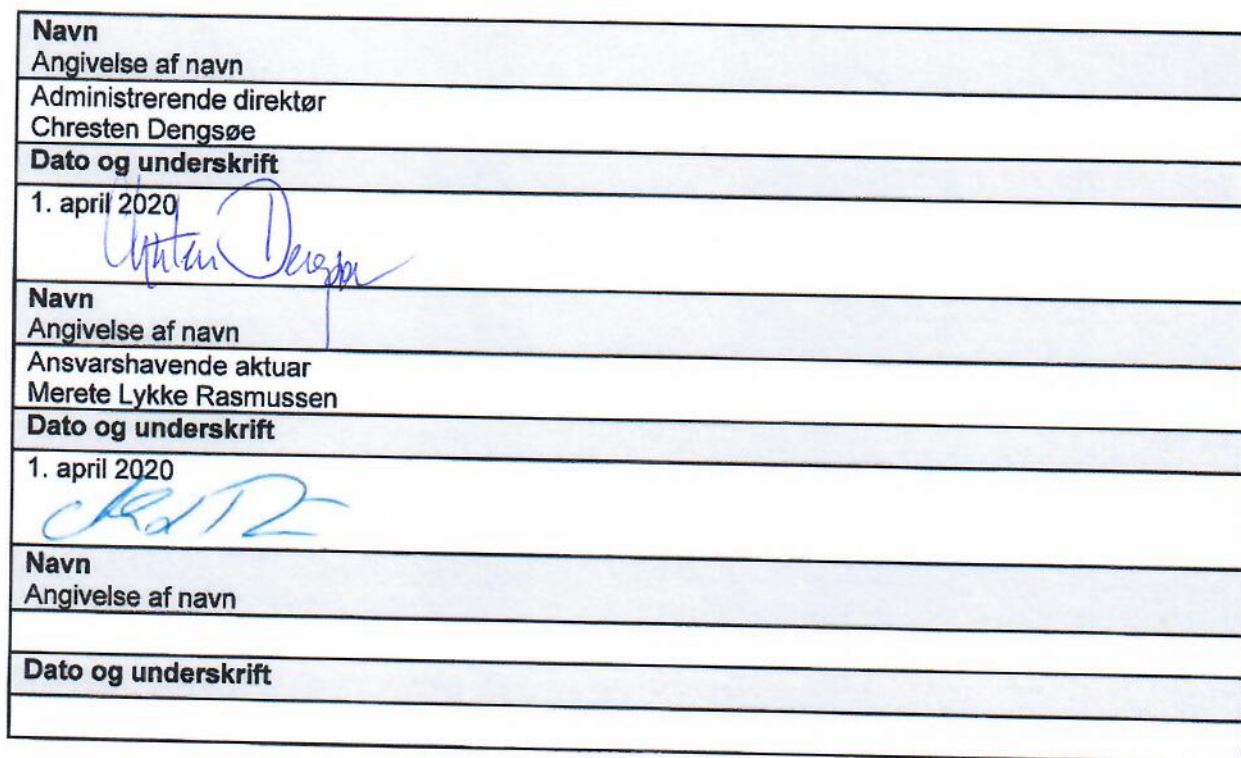 Navn
Angivelse af navn
Administrerende direktør
Chresten Dengsøe
Dato og underskrift
1. april 2020
Navn
Angivelse af navn
Ansvarshavende aktuar
Merete Lykke Rasmussen
Dato og underskrift
1. april 2020
Navn
Angivelse af navn
Dato og underskrift